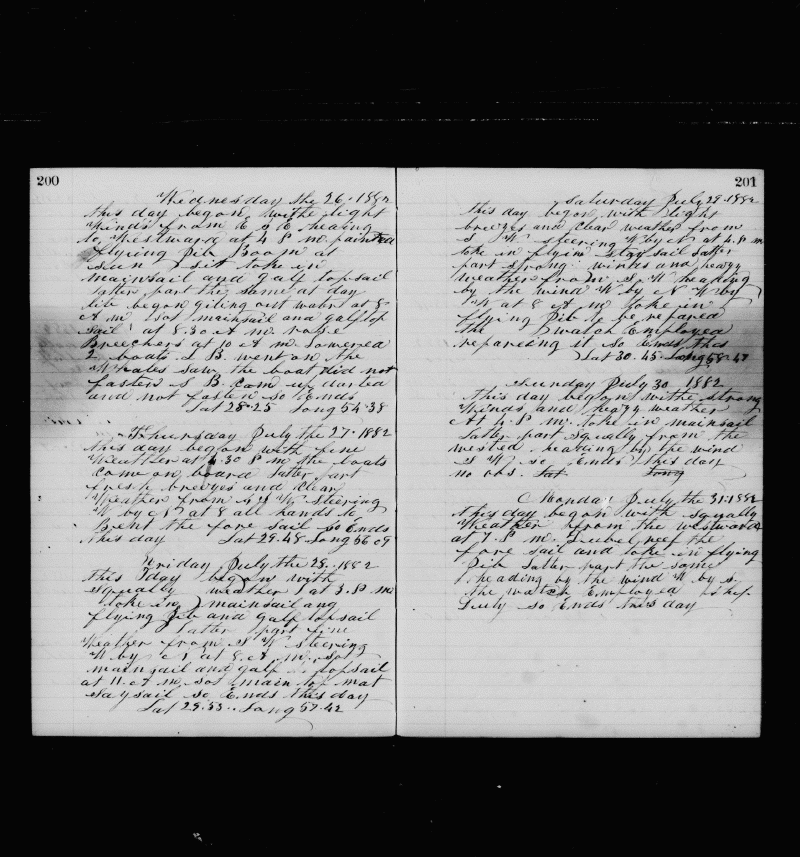 200
Wednesday the 26. 1882
this day began withe light
Winds from E S E heaing
to Westward at 4 P M painted
flying Jib Boom at
sun sit toke in
mainsail and galf topsail
latter part the same at day
lite began giting out watr at 8
A M sot mainsail and galf top
sail at 8.30 A M rase
Breechers at 10 A M lowered
2 boats. L B. went on the
Whales saw the boat did not
fasten S B. com up darted
and not fasten so Ends
Lat 28.25 Long 54.38
Thursday July the 27. 1882
this day began with fine
Weather at 4.30 P M the boats
Come on board latter part
fresh breezes and Clear
Weather from S S W Steering
W by N at 8 all hands to
Bent the fore sail so Ends
this day Lat 29.48 Long 56 09
Friday July the 28. 1882
this day began with
squally weather at 3. P M
toke in mainsail and
flying Jib and galf topsail
Latter part fine
Weather from S W Steering
W by N at 8. A. M. sot
mainsail and galf topsail
at 11. A M. sot main top mat
Staysail so Ends this day
Lat 29.53.. Long 57.42
201
Saturday July 29. 1882
this day began with light
breezes and Clear weather from
S W steering W by N at 4. P M
toke in flyin staysail Latter
part strong winds and heavy
weather from S. W heading
by the wind W by N W by
W at 8 A M toke in
flying Jib to be repared
the watch Employed
repareing it so Ends this
Lat 30.45. Long 58.47
Sunday July 30 1882
this day began withe strong
Winds and heavy weather
At 4. P M. toke in mainsail
Latter part squally from the
wested. heading by the wind
S W. so Ends this day
no obs. Lat Long
Monday July the 31. 1882
this day began with squally
Weather from the westward
at 7. P M. Dubel reef the
fore sail and toke in flying
Jib Latter part the same
heading by the wind W by S.
the watch Employed in
so Ends this day